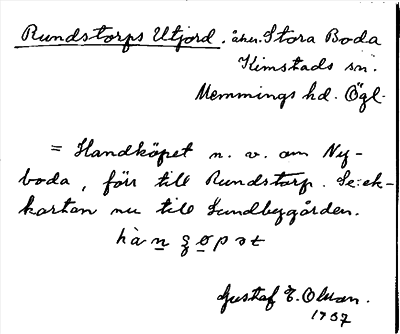 Rundstorps Utjord. åker. Stora Boda
Kimstads sn.
Memmings hd. Ögl.
= Handköpet n. v. om Ny-
boda, förr till Rundstorp. Se: ek-
kartan nu till Sundbygården.
hànȝopət
Gustaf E. Olsson.
1937